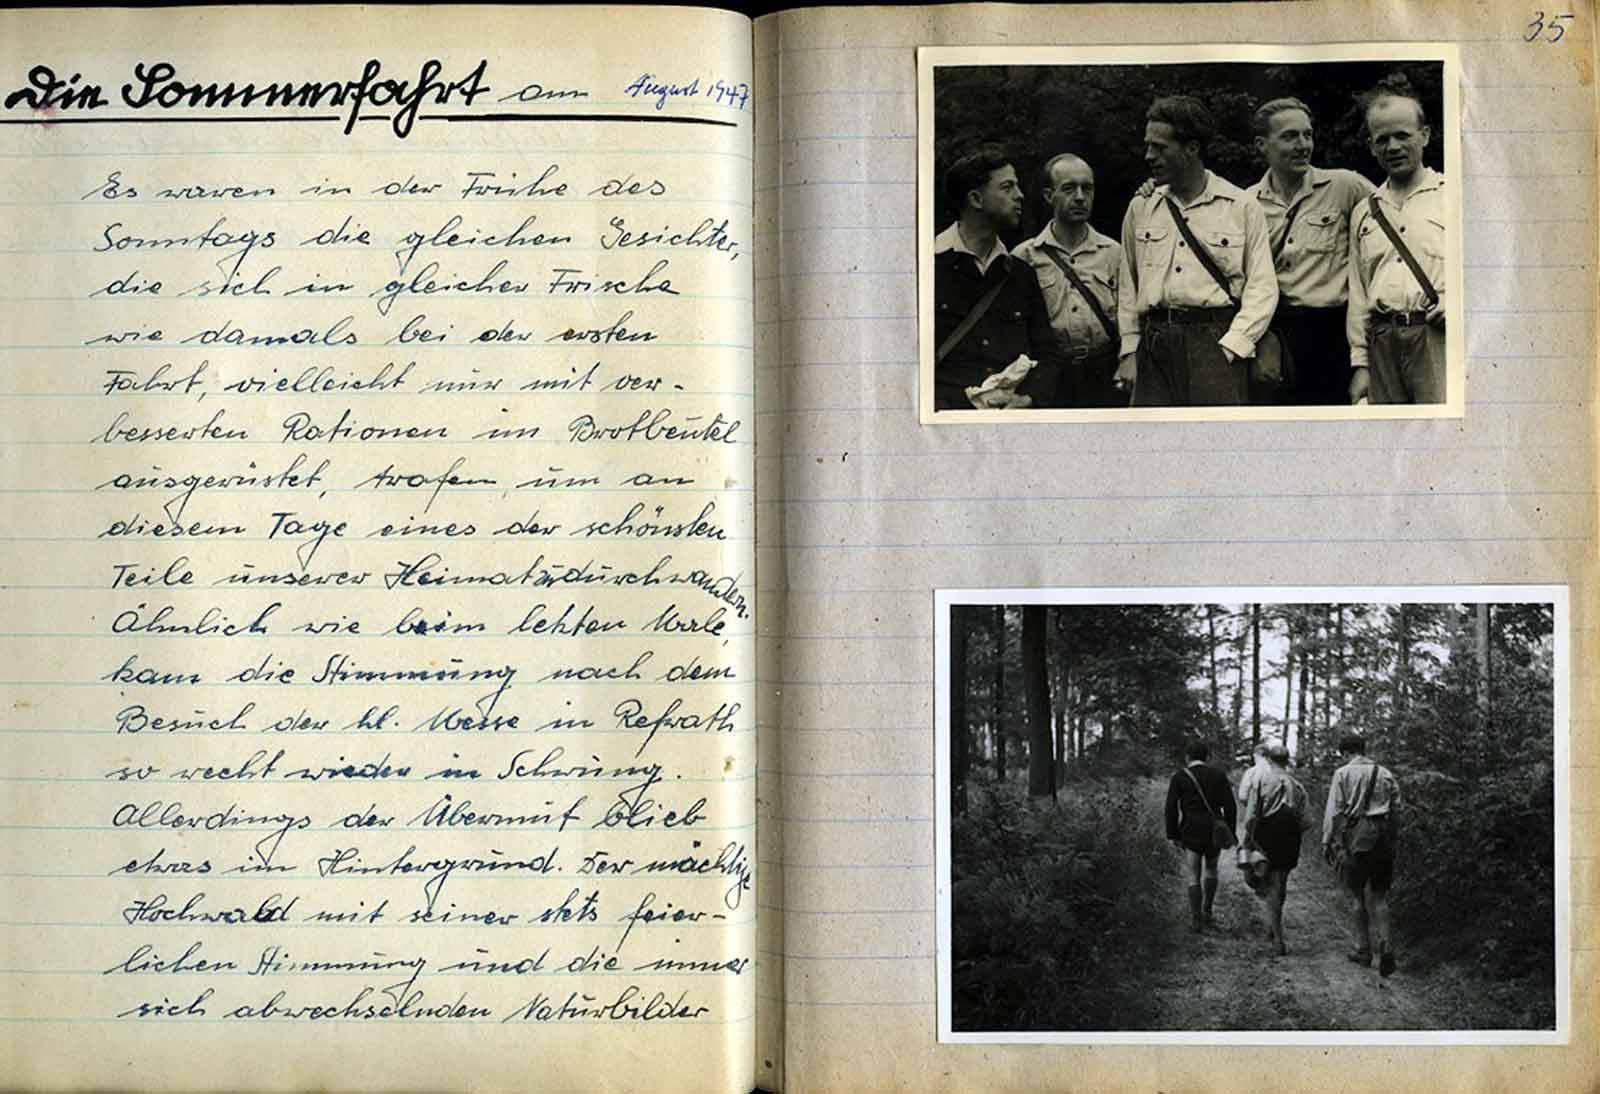 Die Sommerfahrt am August 1947
Es waren in der Frühe des
Sonntags die gleichen Gesichter,
die sich in gleicher Frische
wie damals bei der ersten
Fahrt, vielleicht nur mit ver-
besserten Rationen im Brotbeutel
ausgerüstet, trafen, um an
diesem Tage eines der schönsten
Teile unserer Heimat zu durchwandern.
Ähnlich wie beim letzten Male,
kam die Stimmung nach dem
Besuch der hl. Messe in Refrath
so recht wieder in Schwung.
Allerdings der Übermut blieb
etwas im Hintergrund. Der mächtige
Hochwald mit seiner stets feier-
lichen Stimmung und die immer
sich abwechselnden Naturbilder
35